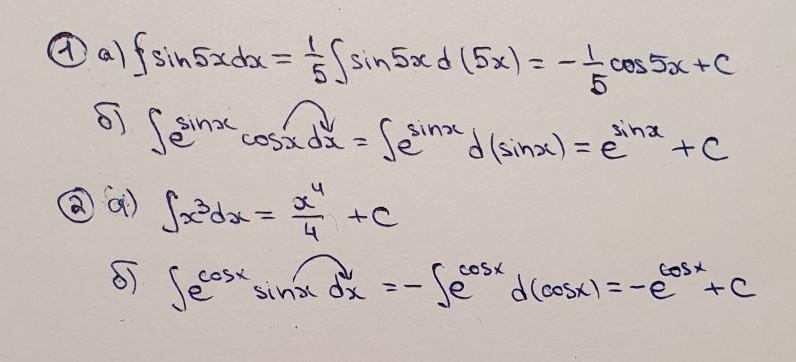 ① а) ∫sin5xdx = 1/5 ∫sin5x d(5x) = -1/5 cos5x + C
б) ∫e^sinx cosx dx = ∫e^sinx d(sinx) = e^sinx + C
② а) ∫x³dx = x⁴/4 + C
б) ∫e^cosx sinx dx = -∫e^cosx d(cosx) = -e^cosx + C